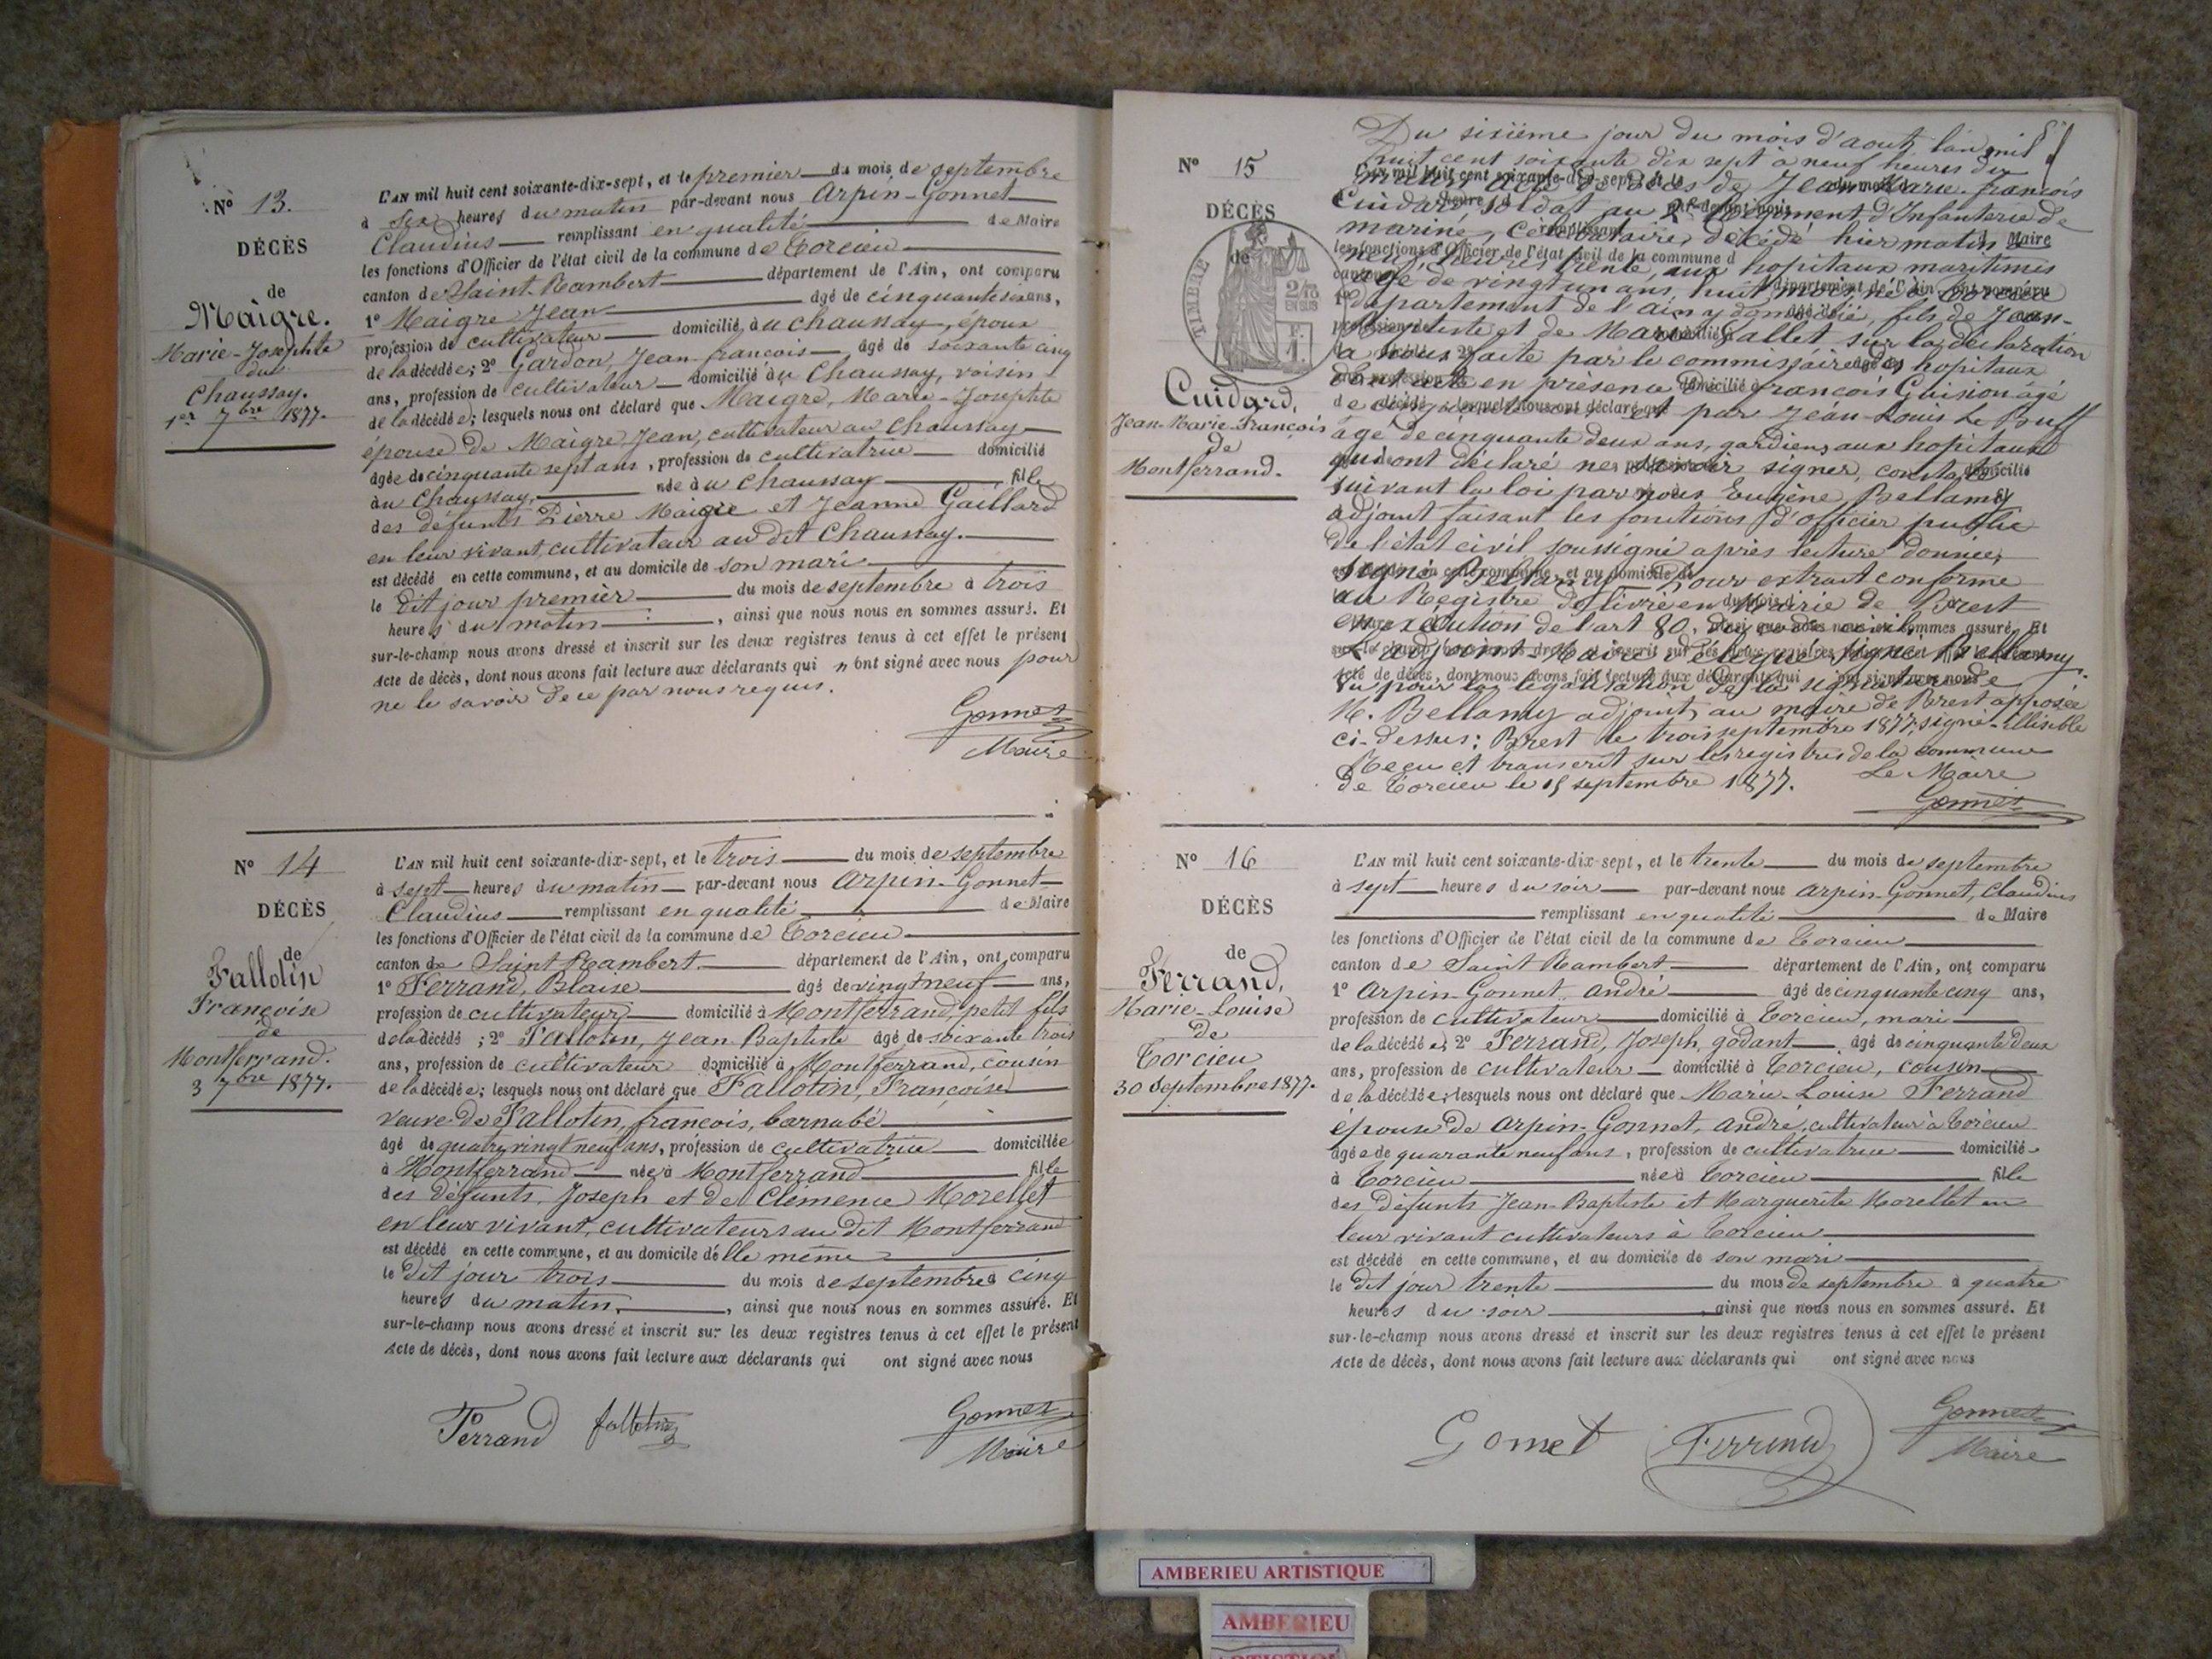 Nº 13.
DÉCÈS
de
Maigre.
Marie-Josephte
du
Chaussay.
1er 7bre 1877.
L'AN mil huit cent soixante-dix-sept, et le premier du mois de septembre
à six heures du matin par-devant nous Arpin-Gonnet
Claudius remplissant en qualité de Maire
les fonctions d'Officier de l'état civil de la commune de Torcieu
canton de Saint-Rambert département de l'Ain, ont comparu
1º Maigre Jean âgé de cinquante six ans,
profession de cultivateur domicilié au chaussay, époux
de la décédée; 2º Gardon, Jean-françois âgé de soixante cinq
ans, profession de cultivateur domicilié au Chaussay, voisin
de la décédée; lesquels nous ont déclaré que Maigre, Marie-Josephte
épouse de Maigre Jean, cultivateur au Chaussay
âgée de cinquante sept ans, profession de cultivatrice domicilié
au Chaussay née au Chaussay fille
des défunts Pierre Maigre et Jeanne Gaillard
en leur vivant, cultivateur au dit Chaussay.
est décédé en cette commune, et au domicile de son mari
le dit jour premier du mois de septembre à trois
heures du matin, ainsi que nous nous en sommes assuré. Et
sur-le-champ nous avons dressé et inscrit sur les deux registres tenus à cet effet le présent
Acte de décès, dont nous avons fait lecture aux déclarants qui n'ont signé avec nous pour
ne le savoir de ce par nous requis.
Gonnet
Maire
Nº 14
DÉCÈS
de
Fallotin
Françoise
de
Montferrand.
3 7bre 1877.
L'AN mil huit cent soixante-dix-sept, et le trois du mois de septembre
à sept heures du matin par-devant nous Arpin-Gonnet
Claudius remplissant en qualité de Maire
les fonctions d'Officier de l'état civil de la commune de Torcieu
canton de Saint Rambert département de l'Ain, ont comparu
1º Ferrand, Blaise âgé de vingt neuf ans,
profession de cultivateur domicilié à Montferrand, petit fils
de la décédé; 2º Fallotin, Jean Baptiste âgé de soixante trois
ans, profession de cultivateur domicilié à Montferrand, cousin
de la décédée; lesquels nous ont déclaré que Fallotin, Françoise
veuve de Fallotin, françois, barnabé
âgé de quatre vingt neuf ans, profession de cultivatrice domiciliée
à Montferrand née à Montferrand fille
des défunts Joseph et de Clémence Morellet
en leur vivant, cultivateurs au dit Montferrand
est décédé en cette commune, et au domicile d'elle même
le dit jour trois du mois de septembre à cinq
heures du matin, ainsi que nous nous en sommes assuré. Et
sur-le-champ nous avons dressé et inscrit sur les deux registres tenus à cet effet le présent
Acte de décès, dont nous avons fait lecture aux déclarants qui ont signé avec nous
Ferrand fallotin Gonnet
Maire
Nº 15
DÉCÈS
de
TIMBRE
Cuidard,
Jean-Marie-François
de
Montferrand.
Du sixième jour du mois d'aout, l'an mil
huit cent soixante dix sept à neuf heures du
matin acte de décès de Jean-Marie-françois
Cuidard, soldat au 2e Régiment d'Infanterie de
marine, célibataire, décédé hier matin à
neuf heures trente, aux hopitaux maritimes
âgé de vingt un ans, huit mois, né à Torcieu
département de l'ain y domicilié, fils de Jean-
Baptiste et de Marie Gallet sur la déclaration
à nous faite par le commissaire des hopitaux
en présence de françois Guision âgé
de et par Jean-Louis Le Buff
âgé de cinquante deux ans, gardiens aux hopitaux
qui ont déclaré ne savoir signer, constaté
suivant la loi par nous Eugène Bellamy
adjoint faisant les fonctions d'officier public
de l'état civil soussigné après lecture donnée,
signé Bellamy Pour extrait conforme
au Registre délivré en Mairie de Brest
en exécution de l'art 80, du code civil
L'adjoint Maire délégué signé Bellamy
Vu pour la légalisation de la signature de
M. Bellamy adjoint, au maire de Brest apposée
ci-dessus: Brest le trois septembre 1877, signé illisible
Reçu et transcrit sur les registres de la commune
de Torcieu le 15 septembre 1877. Le Maire
Gonnet
Nº 16
DÉCÈS
de
Ferrand,
Marie-Louise
de
Torcieu
30 Septembre 1877.
L'AN mil huit cent soixante-dix-sept, et le trente du mois de septembre
à sept heures du soir par-devant nous Arpin-Gonnet, Claudius
remplissant en qualité de Maire
les fonctions d'Officier de l'état civil de la commune de Torcieu
canton de Saint Rambert département de l'Ain, ont comparu
1º Arpin-Gonnet André âgé de cinquante cinq ans,
profession de cultivateur domicilié à Torcieu, mari
de la décédée; 2º Ferrand, Joseph, godant âgé de cinquante deux
ans, profession de cultivateur domicilié à Torcieu, cousin
de la décédée; lesquels nous ont déclaré que Marie-Louise Ferrand
épouse de Arpin-Gonnet, André, cultivateur à Torcieu
âgée de quarante neuf ans, profession de cultivatrice domicilié
à Torcieu née à Torcieu fille
des défunts Jean-Baptiste et Marguerite Morellet en
leur vivant cultivateurs à Torcieu
est décédé en cette commune, et au domicile de son mari
le dit jour trente du mois de septembre à quatre
heures du soir, ainsi que nous nous en sommes assuré. Et
sur-le-champ nous avons dressé et inscrit sur les deux registres tenus à cet effet le présent
Acte de décès, dont nous avons fait lecture aux déclarants qui ont signé avec nous
Gonnet Ferrand Gonnet
Maire
AMBERIEU ARTISTIQUE
AMBERIEU
ARTISTIQUE